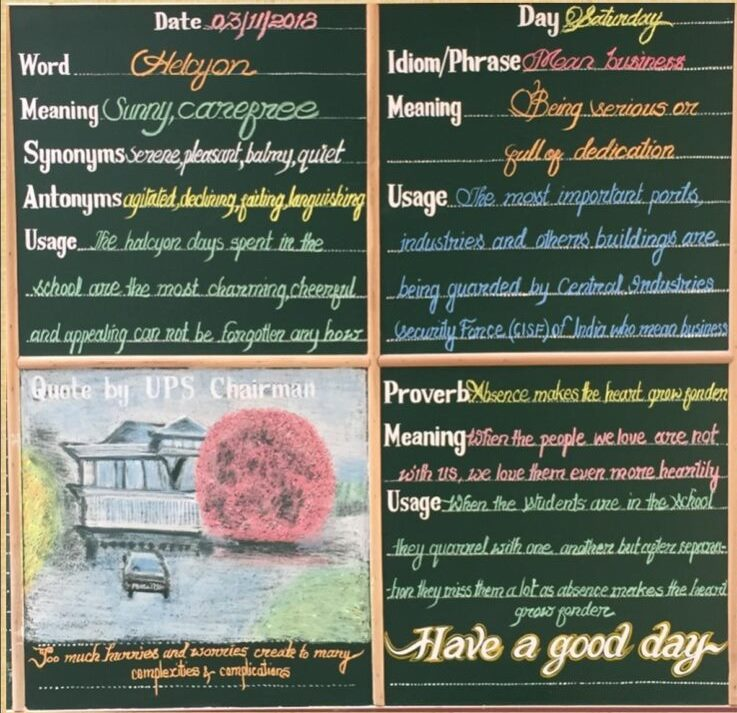 Date 03/11/2018
Word Helcyon
Meaning Sunny, carefree
Synonyms serene, pleasant, balmy, quiet
Antonyms agitated, declining, failing, languishing
Usage The halcyon days spent in the
school are the most charming, cheerful
and appealing can not be forgotten any how
Day Saturday
Idiom/Phrase Mean business
Meaning Being serious or
full of dedication
Usage The most important ports,
industries and others buildings are
being guarded by Central Industries
Security Force (CISF) of India who mean business
Quote by UPS Chairman
Too much hurries and worries create to many
complexities & complications
Proverb Absence makes the heart grow fonder
Meaning When the people we love are not
with us, we love them even more heartily
Usage When the students are in the school
they quarrel with one another but after separa-
tion they miss them a lot as absence makes the heart
grow fonder
Have a good day